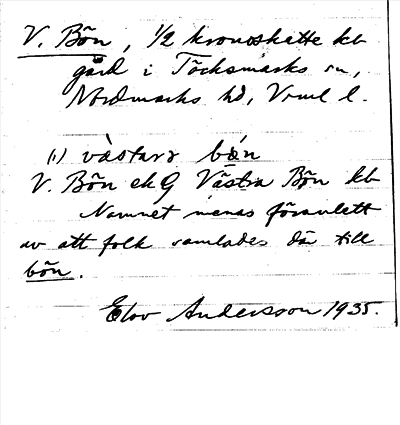 V. Bõn, 1/2 kronoskatte kb
gård i Töcksmarks sn,
Nordmarks hd, Vrml l.
(1) västarr bön
V. Bõn ek G Västra Bõn kb
Namnet menas föranlett
av att folk samlades där till
bön.
Elov Andersson 1935.